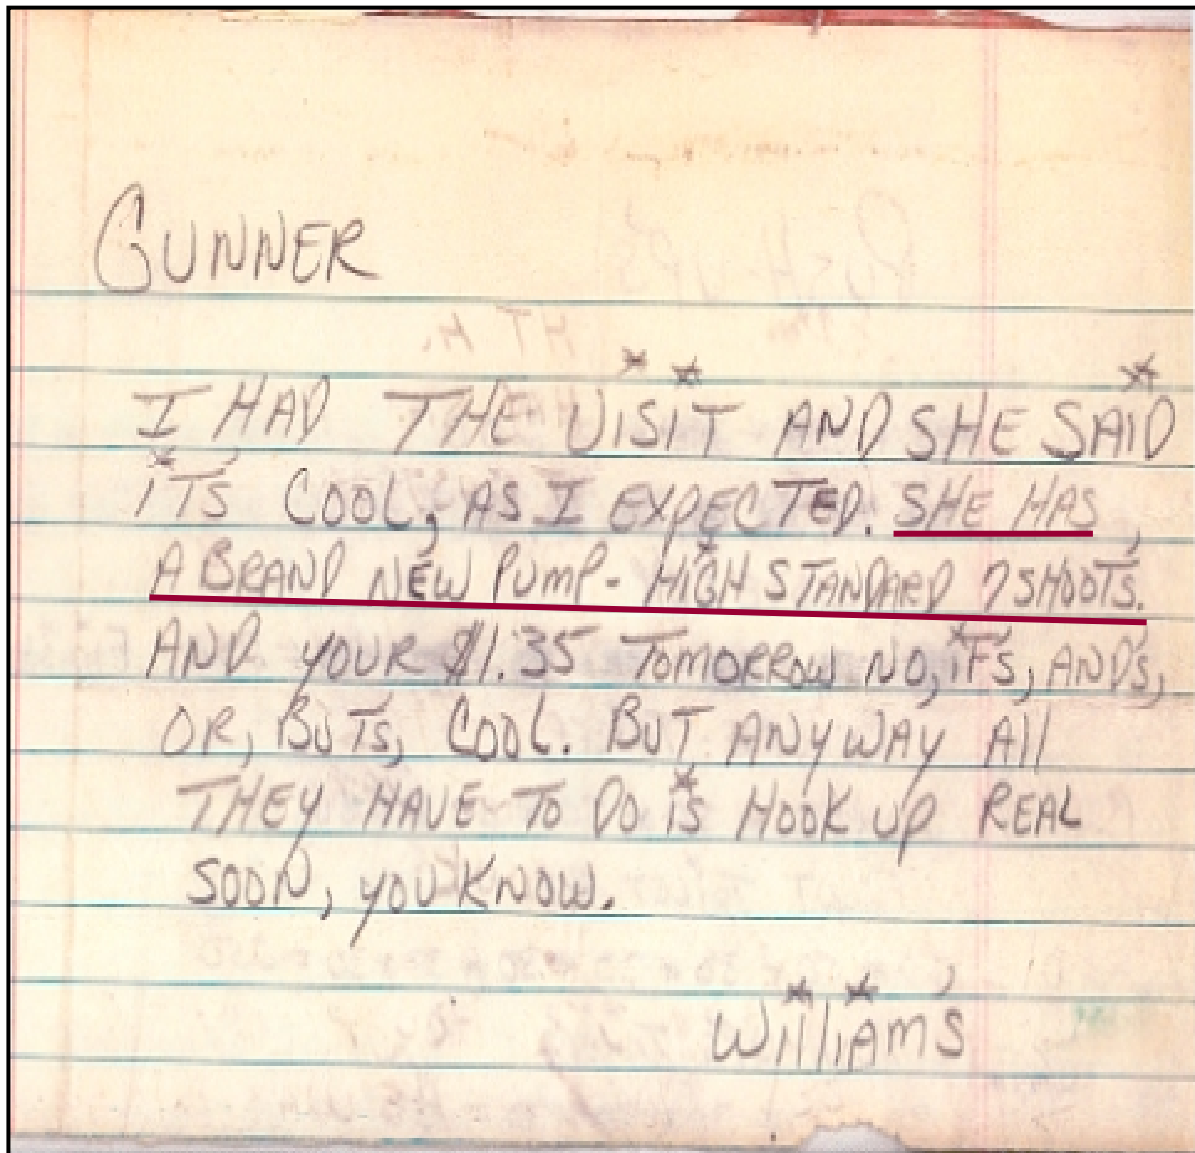 GUNNER
I HAD THE VISIT AND SHE SAID
iT'S COOL, AS I EXPECTED. SHE HAS,
A BRAND NEW PUMP- HIGH STANDARD 7 SHOOTS.
AND YOUR $1.35 TOMORROW NO, iF'S, AND'S,
OR, BUTS, COOL. BUT ANYWAY All
THEY HAVE TO DO iS HOOK UP REAL
SOON, YOU KNOW.
WilliAM'S